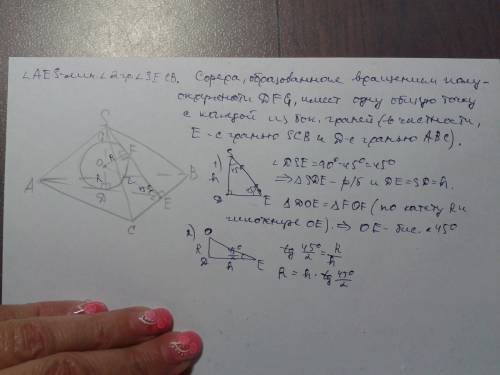 ∠AES-лин. ∠ 2гр ∠SECB. Сфера, образованная вращением полу-
окружности DFG, имеет одну общую точку
с каждой из бок. граней (в частности,
F - с гранью SCB и D - с гранью ABC).
S
A
B
C
D
E
F
O
R
R
45°
1)
h
D
E
45°
45°
∠DSE=90°-45°=45°
⇒ △SDE - р/б и DE=SD=h.
△DOE=△FOE (по катету R и
гипотенузе OE). ⇒ OE - бис. ∠45°
2)
O
R
D
h
E
tg 45°/2 = R/h
R = h · tg 45°/2